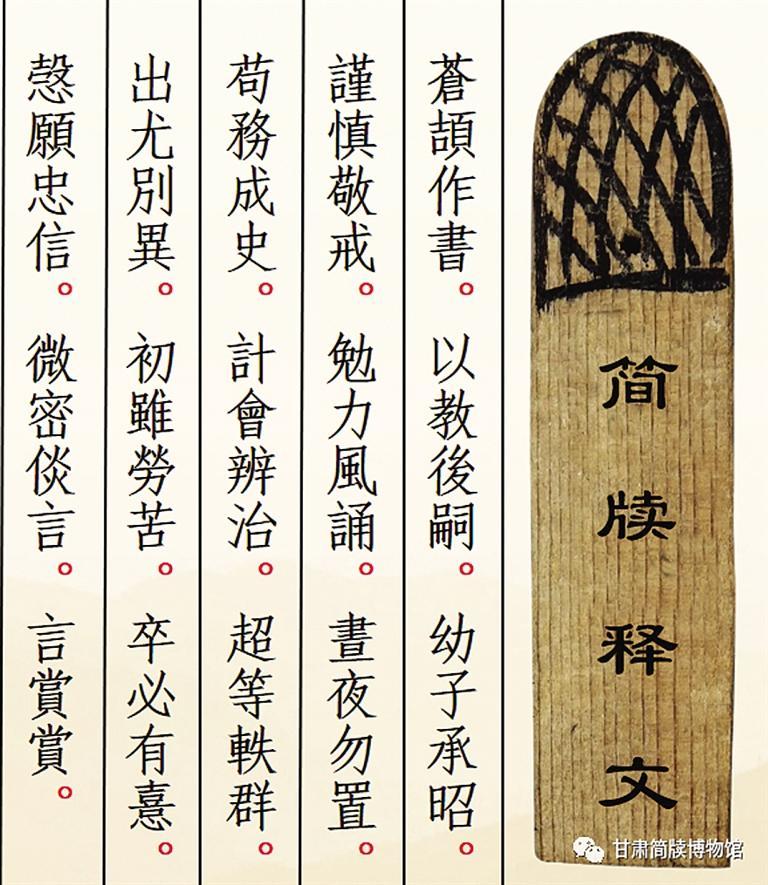 简牍释文
蒼頡作書。以教後嗣。幼子承昭。
謹慎敬戒。勉力風誦。晝夜勿置。
苟務成史。計會辨治。超等軼群。
出尤別異。初雖勞苦。卒必有憙。
愨願忠信。微密倓言。言賞賞。
甘肃简牍博物馆